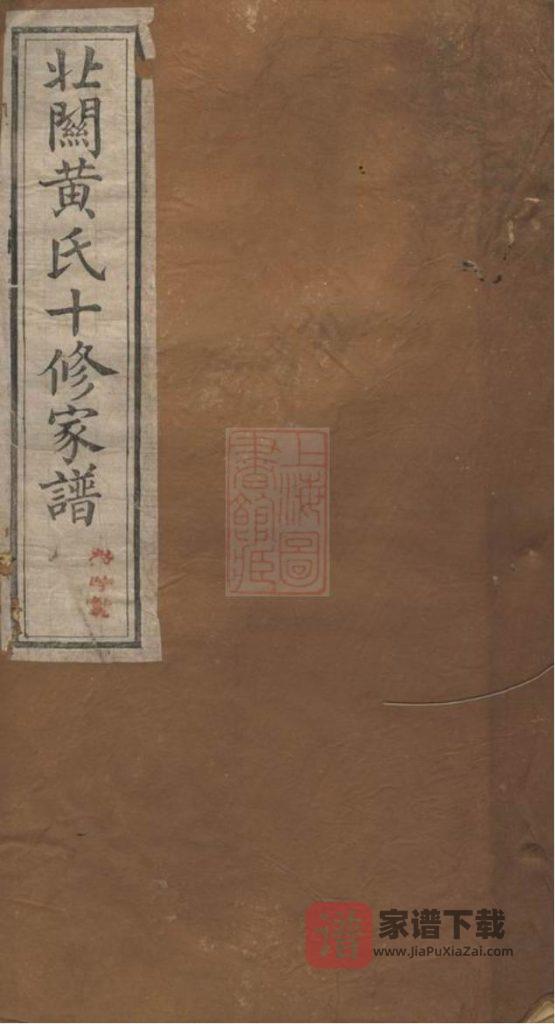 北關黄氏十修家譜
上海圖
書館藏
譜 家谱下载
www.JiaPuXiaZai.com